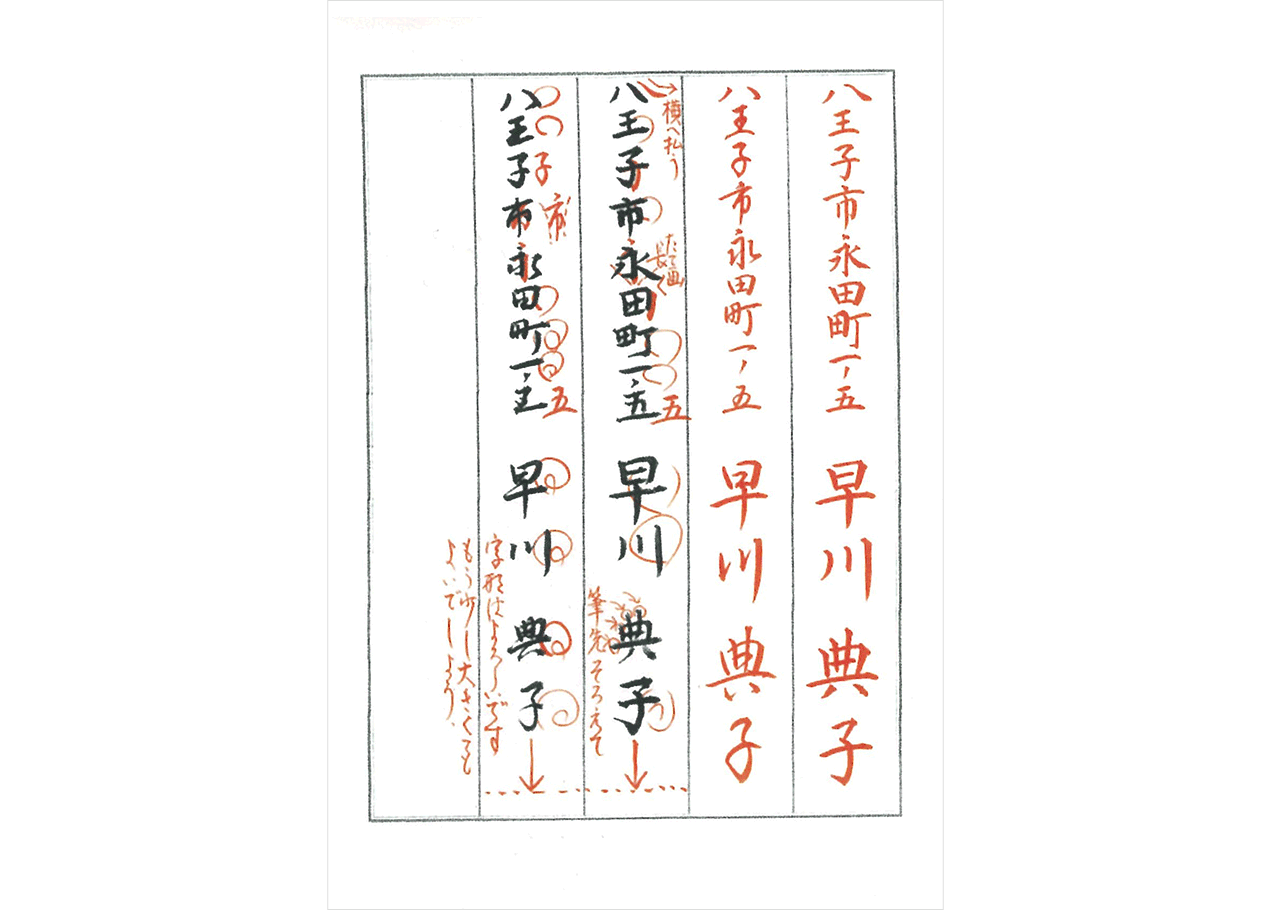 八王子市永田町一、五 早川典子
八王子市永田町一、五 早川典子
八王子市永田町一、五 早川典子
横へ払う
たて画
長く
五
筆先そろえて
八王子市永田町一、五 早川典子
子
市
五
字形はよろしいです
もう少し大きくても
よいでしょう。